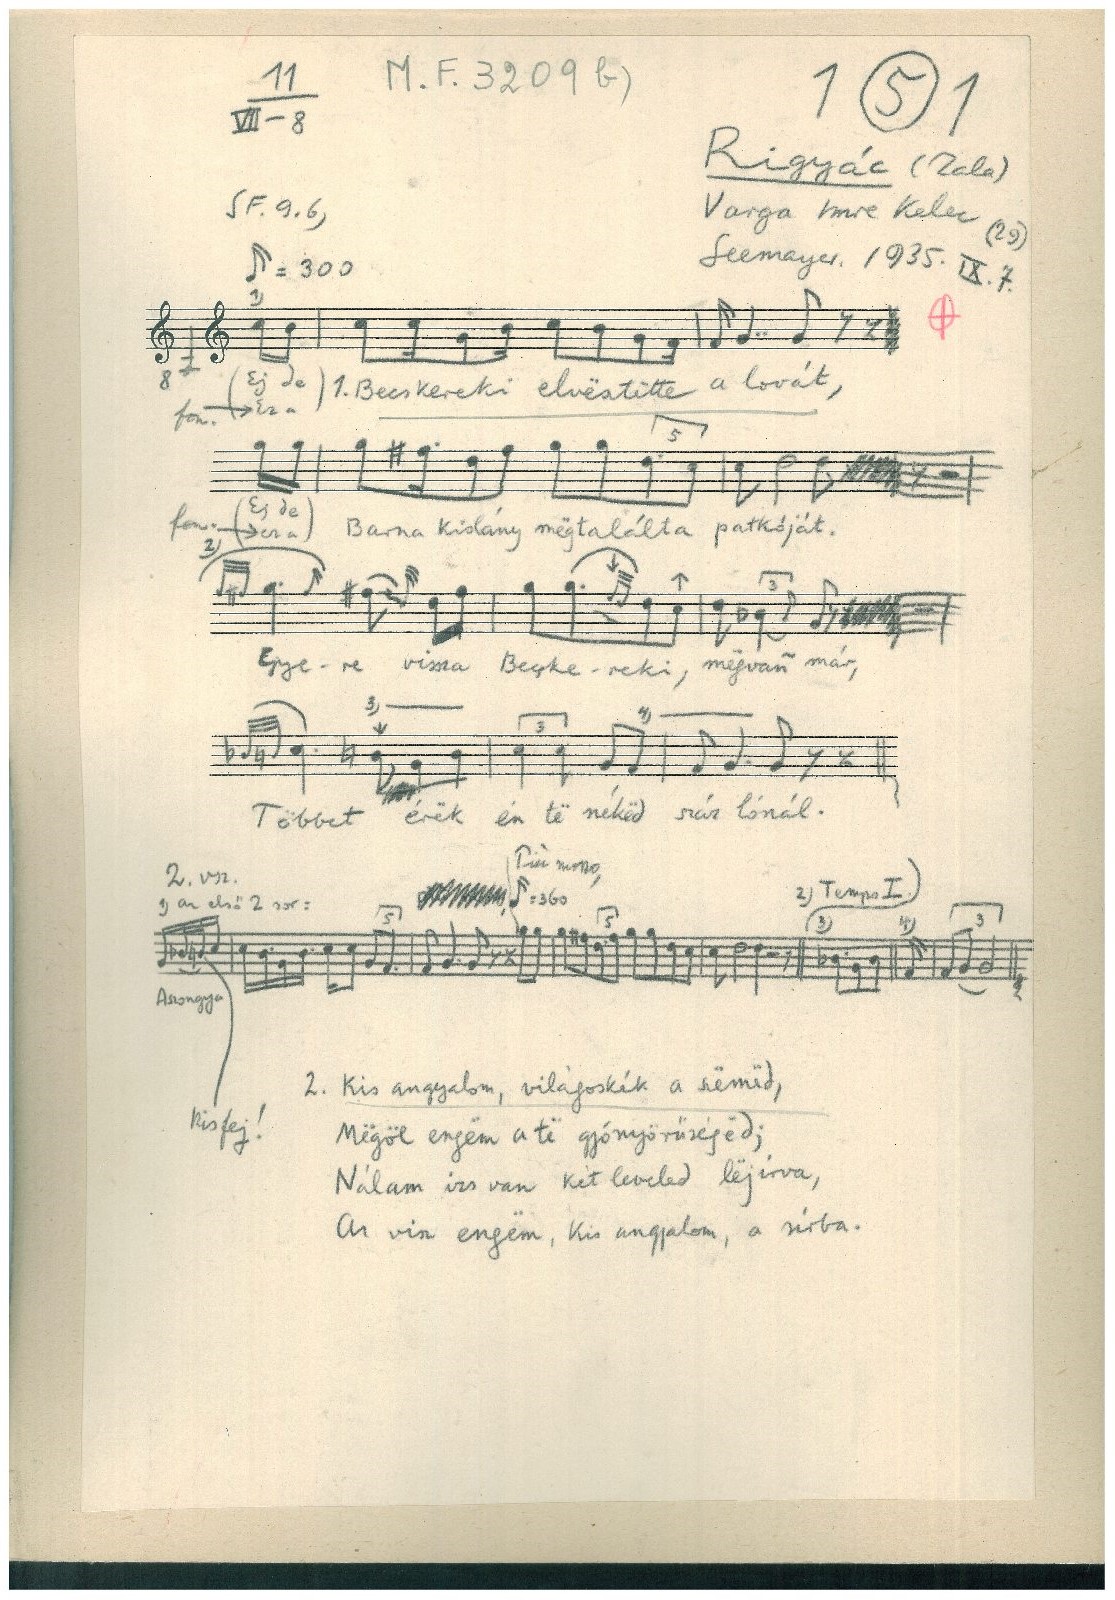 11
VII-8
M.F. 3209 b)
1 5 1
Rigyác (Zala)
Varga Imre Kelec (29)
Seemayer. 1935. IX.7.
SF.9.6,
♪ = 300
1)
8
fon. (Ej de / Ez a) 1. Becskereki elvësztëtte a lovát,
5
fon. (Ej de / ez a) Barna kislány mëgtalálta patkóját.
2)
3
Gye-re vissza Becske-reki, mëgvan már,
3) 3 4)
Többet érëk én të nékëd száz lónál.
2. vsz.
Più mosso,
1) az első 2 sor:
♪ = 360
2) Tempo I.
5 5 3) 4) 3
Aszongya
Kisfej!
2. Kis angyalom, világoskék a szëmëd,
Mëgöl engëm a të gyönyörűségëd;
Nálam izs van két leveled lëjírva,
Az visz engëm, kis angyalom, a sírba.